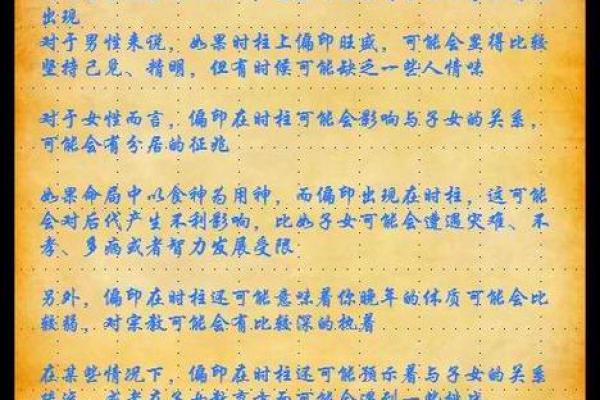 出现
对于男性来说，如果时柱上偏印旺盛，可能会显得比较
坚持己见、精明，但有时候可能缺乏一些人情味
对于女性而言，偏印在时柱可能会影响与子女的关系，
可能会有分居的征兆
如果命局中以食神为用神，而偏印出现在时柱，这可能
会对后代产生不利影响，比如子女可能会遭遇灾难、不
孝、多病或者智力发展受限
另外，偏印在时柱还可能意味着你晚年的体质可能会比
较弱，对宗教可能会有比较深的执着
在某些情况下，偏印在时柱还可能预示着与子女的关系